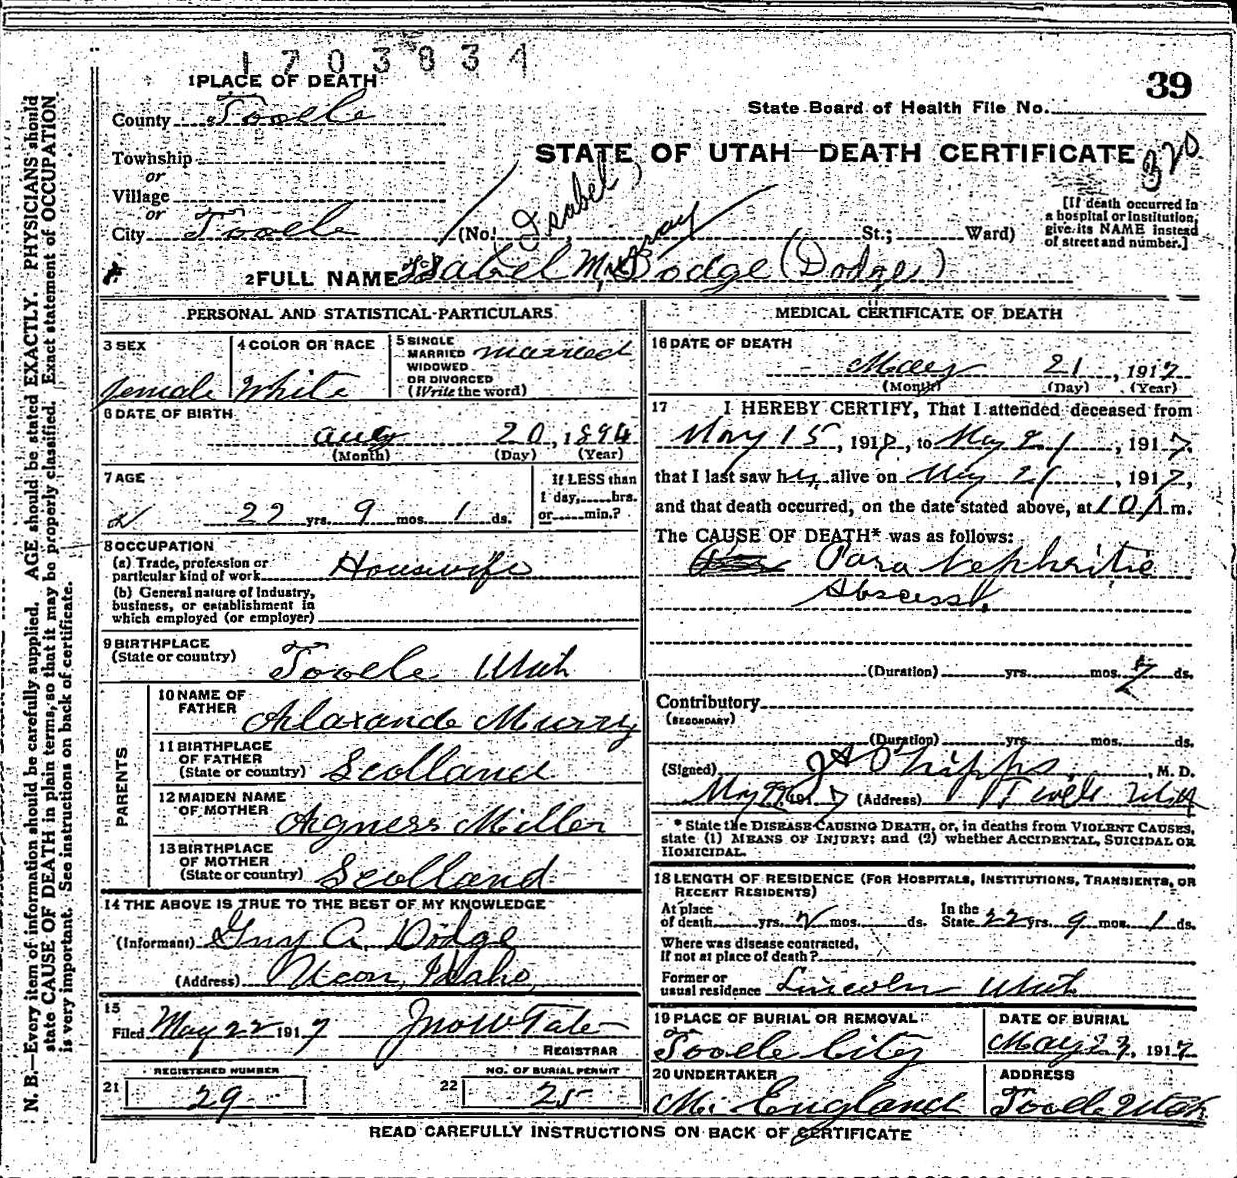 1703834
39
1 PLACE OF DEATH
State Board of Health File No.
County Tooele
STATE OF UTAH—DEATH CERTIFICATE
320
Township
or
Village
or
City Tooele
(No. St.; Ward)
[If death occurred in
a hospital or institution,
give its NAME instead
of street and number.]
(Isabel)
Gray
2 FULL NAME Isabel M. Dodge (Dodge)
PERSONAL AND STATISTICAL PARTICULARS
3 SEX
female
4 COLOR OR RACE
White
5 SINGLE
MARRIED
WIDOWED
OR DIVORCED
(Write the word)
married
6 DATE OF BIRTH
Aug 20, 1894
(Month) (Day) (Year)
7 AGE
22 yrs. 9 mos. 1 ds.
If LESS than
1 day, hrs.
or min.?
8 OCCUPATION
(a) Trade, profession or
particular kind of work Housewife
(b) General nature of Industry,
business, or establishment in
which employed (or employer)
9 BIRTHPLACE
(State or country) Tooele Utah
PARENTS
10 NAME OF
FATHER
Alaxande Murry
11 BIRTHPLACE
OF FATHER
(State or country) Scolland
12 MAIDEN NAME
OF MOTHER
Agness Miller
13 BIRTHPLACE
OF MOTHER
(State or country) Scolland
14 THE ABOVE IS TRUE TO THE BEST OF MY KNOWLEDGE
(Informant) Guy A. Dodge
(Address) Ucon, Idaho,
15
Filed May 22 1917 Jno W Tate
REGISTRAR
21 REGISTERED NUMBER
29
22 NO. OF BURIAL PERMIT
25
MEDICAL CERTIFICATE OF DEATH
16 DATE OF DEATH
May 21, 1917
(Month) (Day) (Year)
17 I HEREBY CERTIFY, That I attended deceased from
May 15, 1917, to May 21, 1917,
that I last saw her alive on May 21, 1917,
and that death occurred, on the date stated above, at 10 A m.
The CAUSE OF DEATH* was as follows:
Para Nephritic
Abscess,
(Duration) yrs. mos. 7 ds.
Contributory
(SECONDARY)
(Duration) yrs. mos. ds.
(Signed) J A Phipps, M. D.
May 22, 1917 (Address) Tooele Utah
* State the DISEASE CAUSING DEATH, or, in deaths from VIOLENT CAUSES,
state (1) MEANS OF INJURY; and (2) whether ACCIDENTAL, SUICIDAL OR
HOMICIDAL.
18 LENGTH OF RESIDENCE (FOR HOSPITALS, INSTITUTIONS, TRANSIENTS, OR
RECENT RESIDENTS)
At place
of death yrs. 2 mos. ds.
In the
State 22 yrs. 9 mos. 1 ds.
Where was disease contracted,
If not at place of death?
Former or
usual residence Lincoln Utah
19 PLACE OF BURIAL OR REMOVAL
Tooele City
DATE OF BURIAL
May 23, 1917
20 UNDERTAKER
M. England
ADDRESS
Tooele Utah
READ CAREFULLY INSTRUCTIONS ON BACK OF CERTIFICATE
N. B.—Every item of information should be carefully supplied. AGE should be stated EXACTLY. PHYSICIANS should
state CAUSE OF DEATH in plain terms, so that it may be properly classified. Exact statement of OCCUPATION
is very important. See instructions on back of certificate.